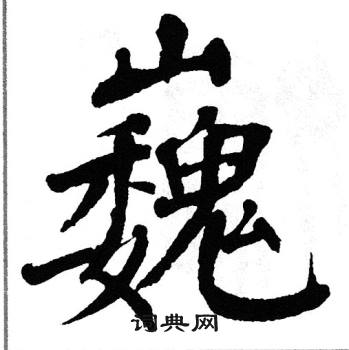 巍
词典网